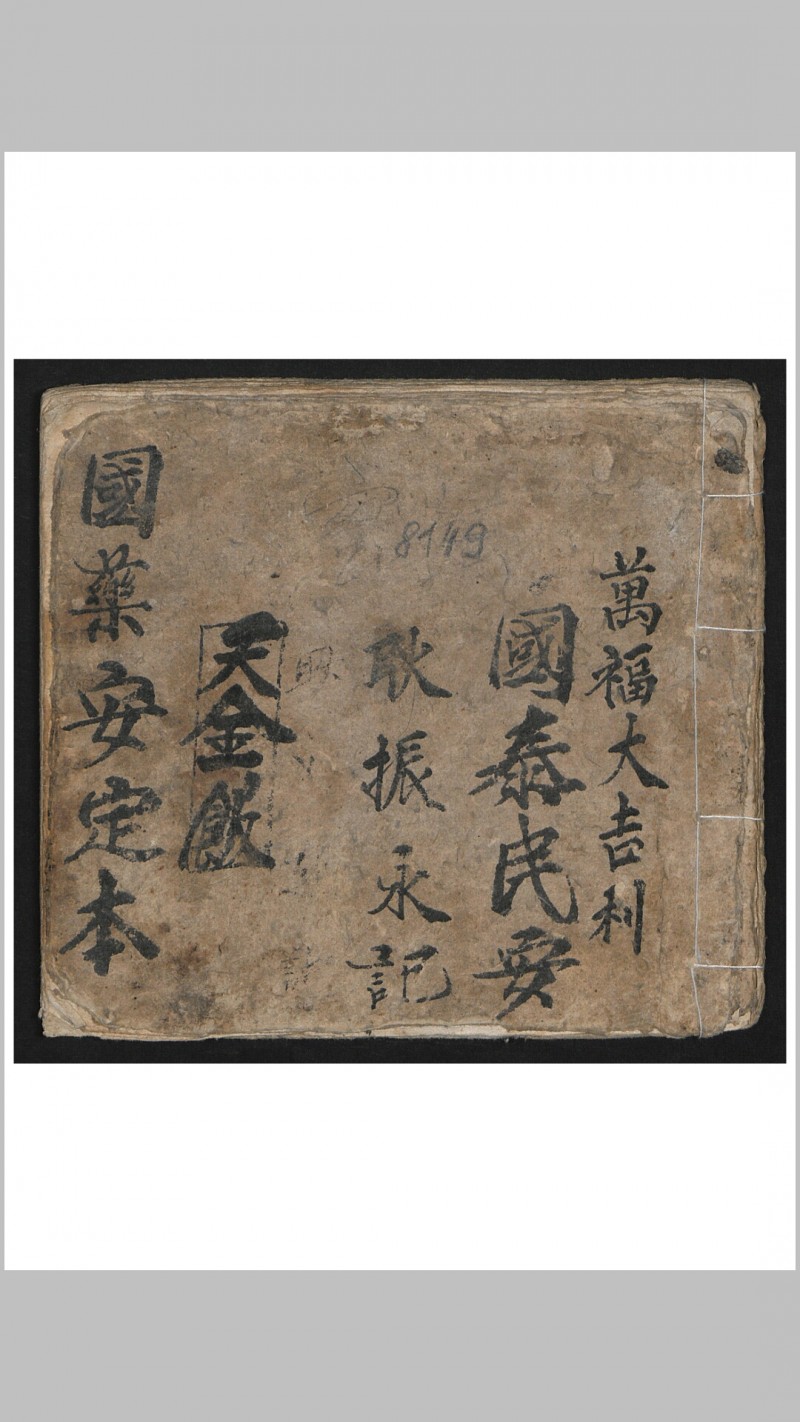 萬福大吉利
國泰民安
耿振永記
8149
天金飲
國藥安定本